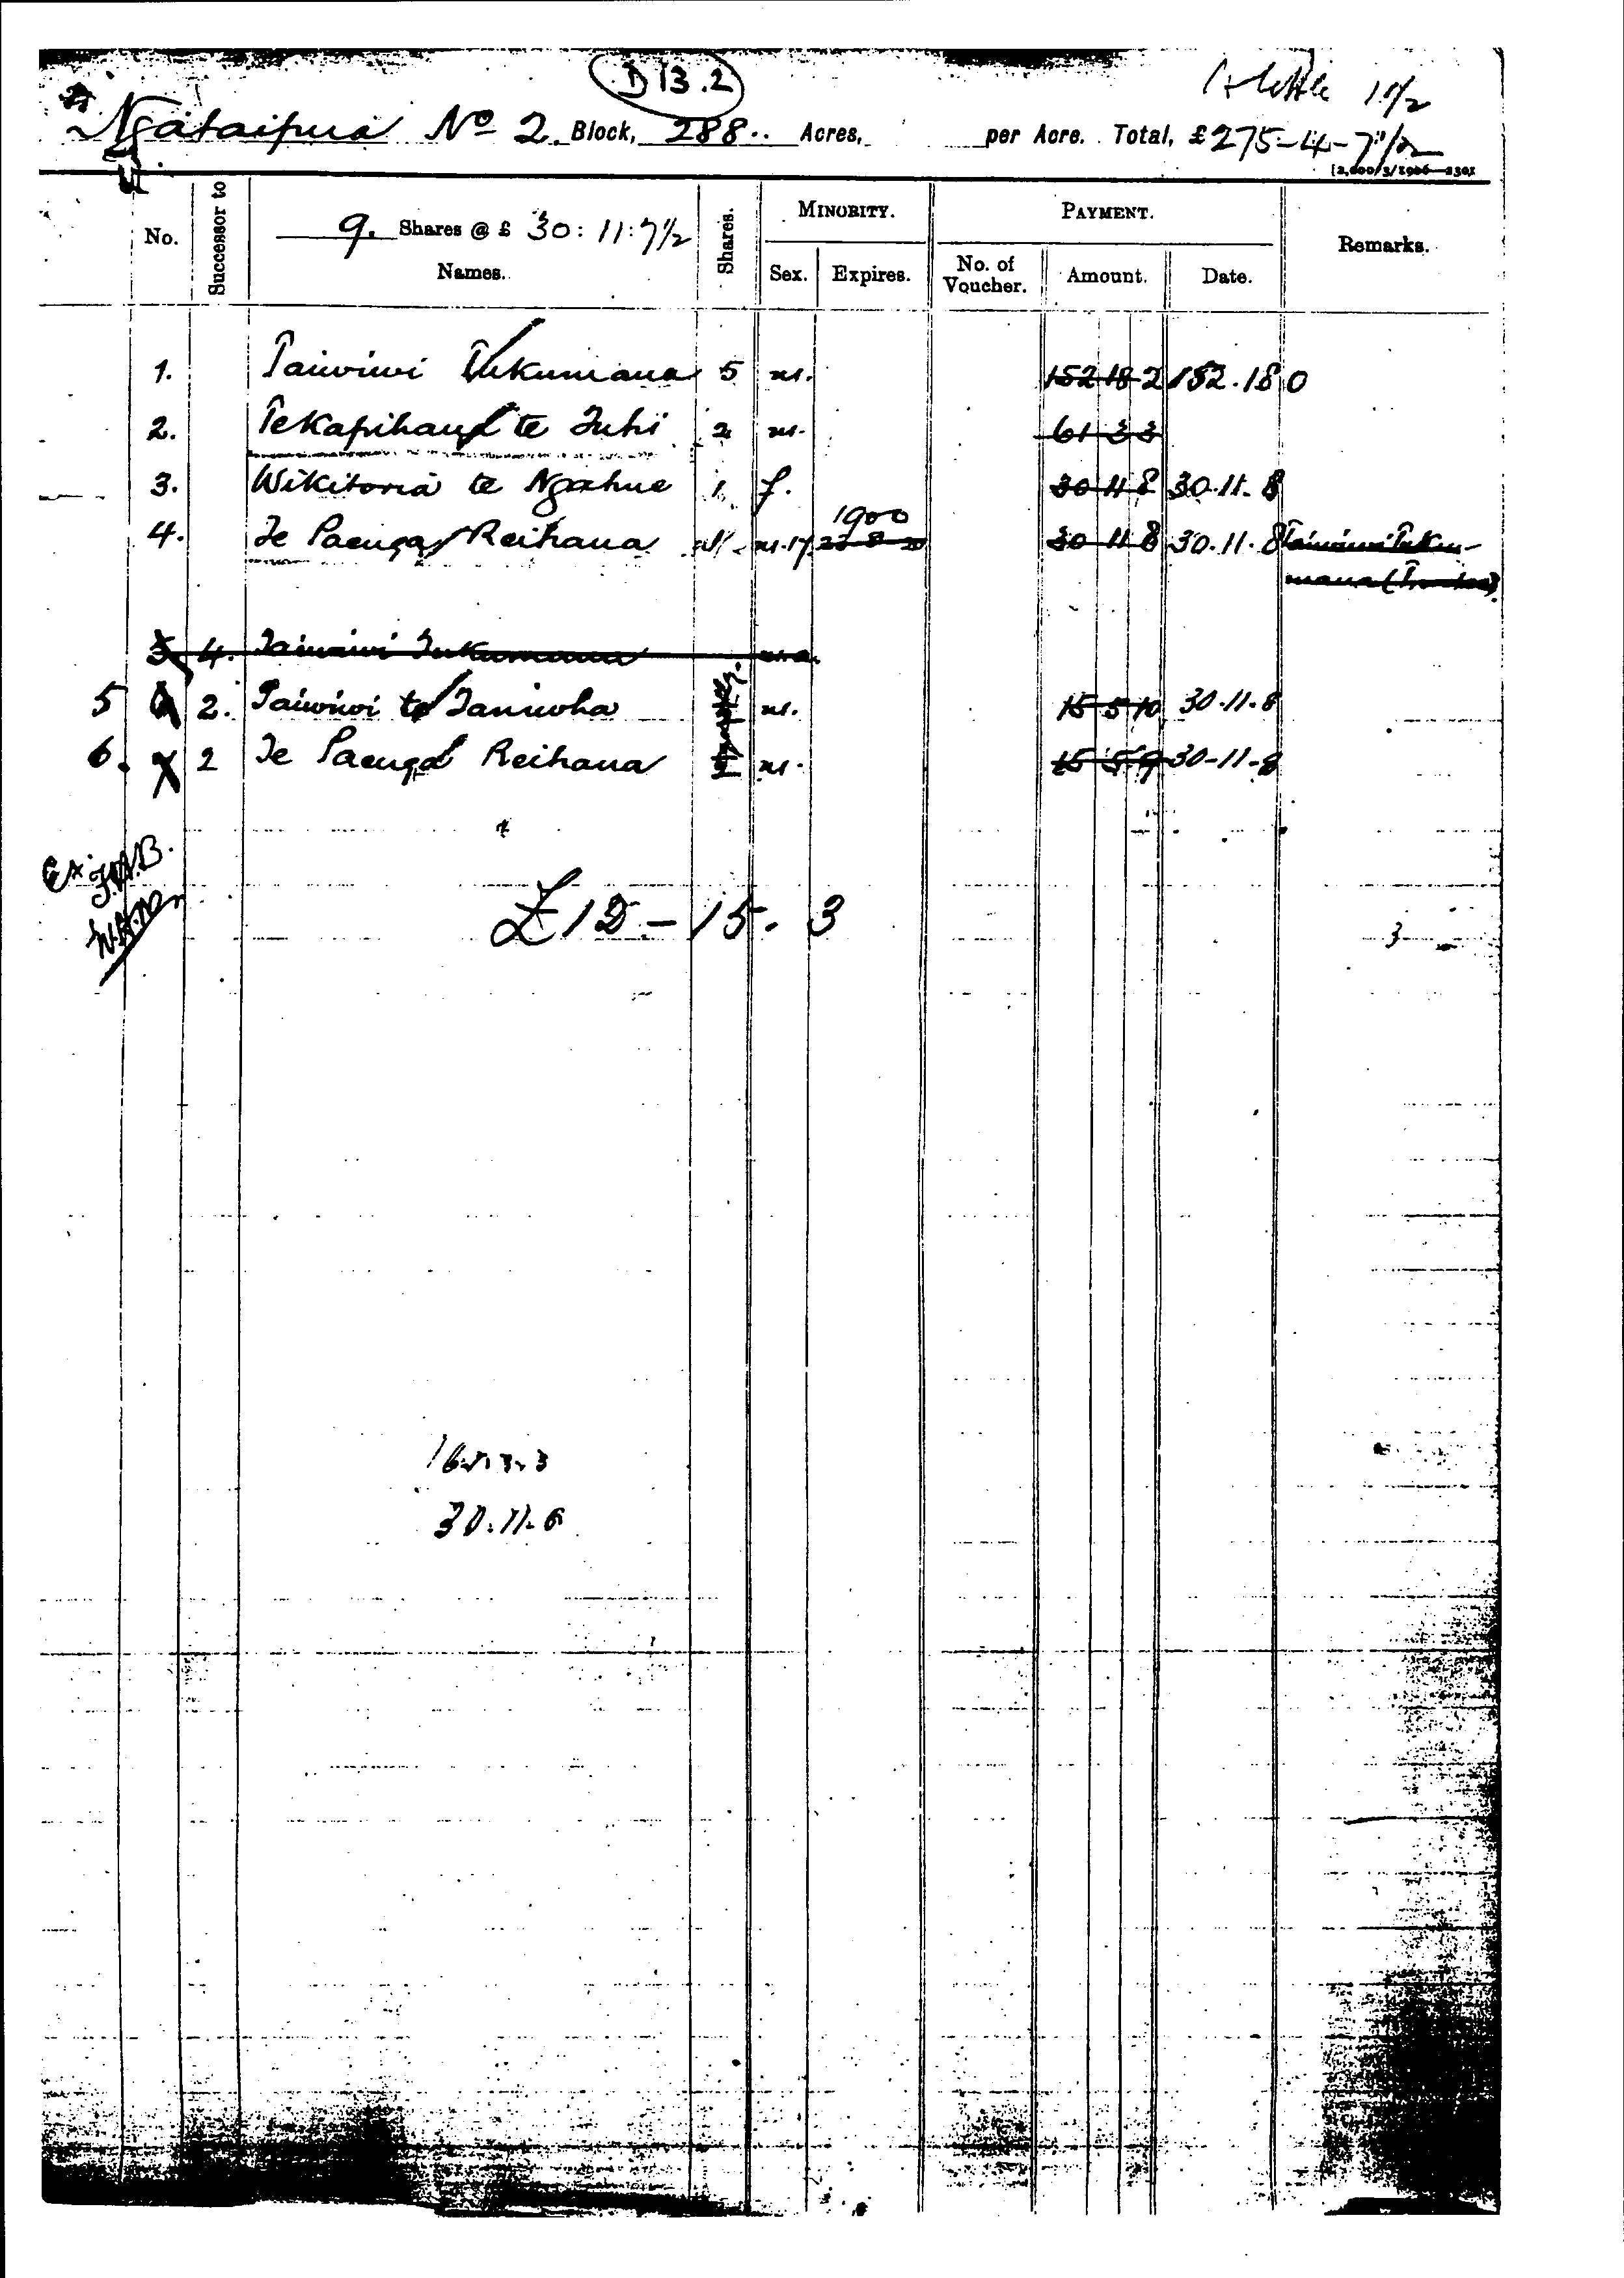 D 13.2
11/2
Ngataipua No 2. Block, 288.. Acres, per Acre. Total, £275-4-7 1/2
[2,000/3/1906—2301
No. Successor to 9. Shares @ £ 30:11:7 1/2 Names. Shares. MINORITY. Sex. Expires. PAYMENT. No. of Voucher. Amount. Date. Remarks.
1. Taiwiwi Tukumana 5 m. 152 18 2 152.18 0
2. Te Kapihana te Tuhi 2 m. 61 3 3
3. Wikitoria te Ngahue 1 f. 30 11 8 30.11.8
1900
4. Te Paenga Reihana 1 m.17 30 11 8 30.11.8 Taiwiwi Tuku-
mana (Trustee)
5. 4. Taiwiwi Tukumana
5 6 2. Taiwiwi te Taniwha m. 15 5 10 30.11.8
6. 2 Te Paenga Reihana m. 15 5 9 30-11-8
Ex.
£12-15.3
3
30.11.6